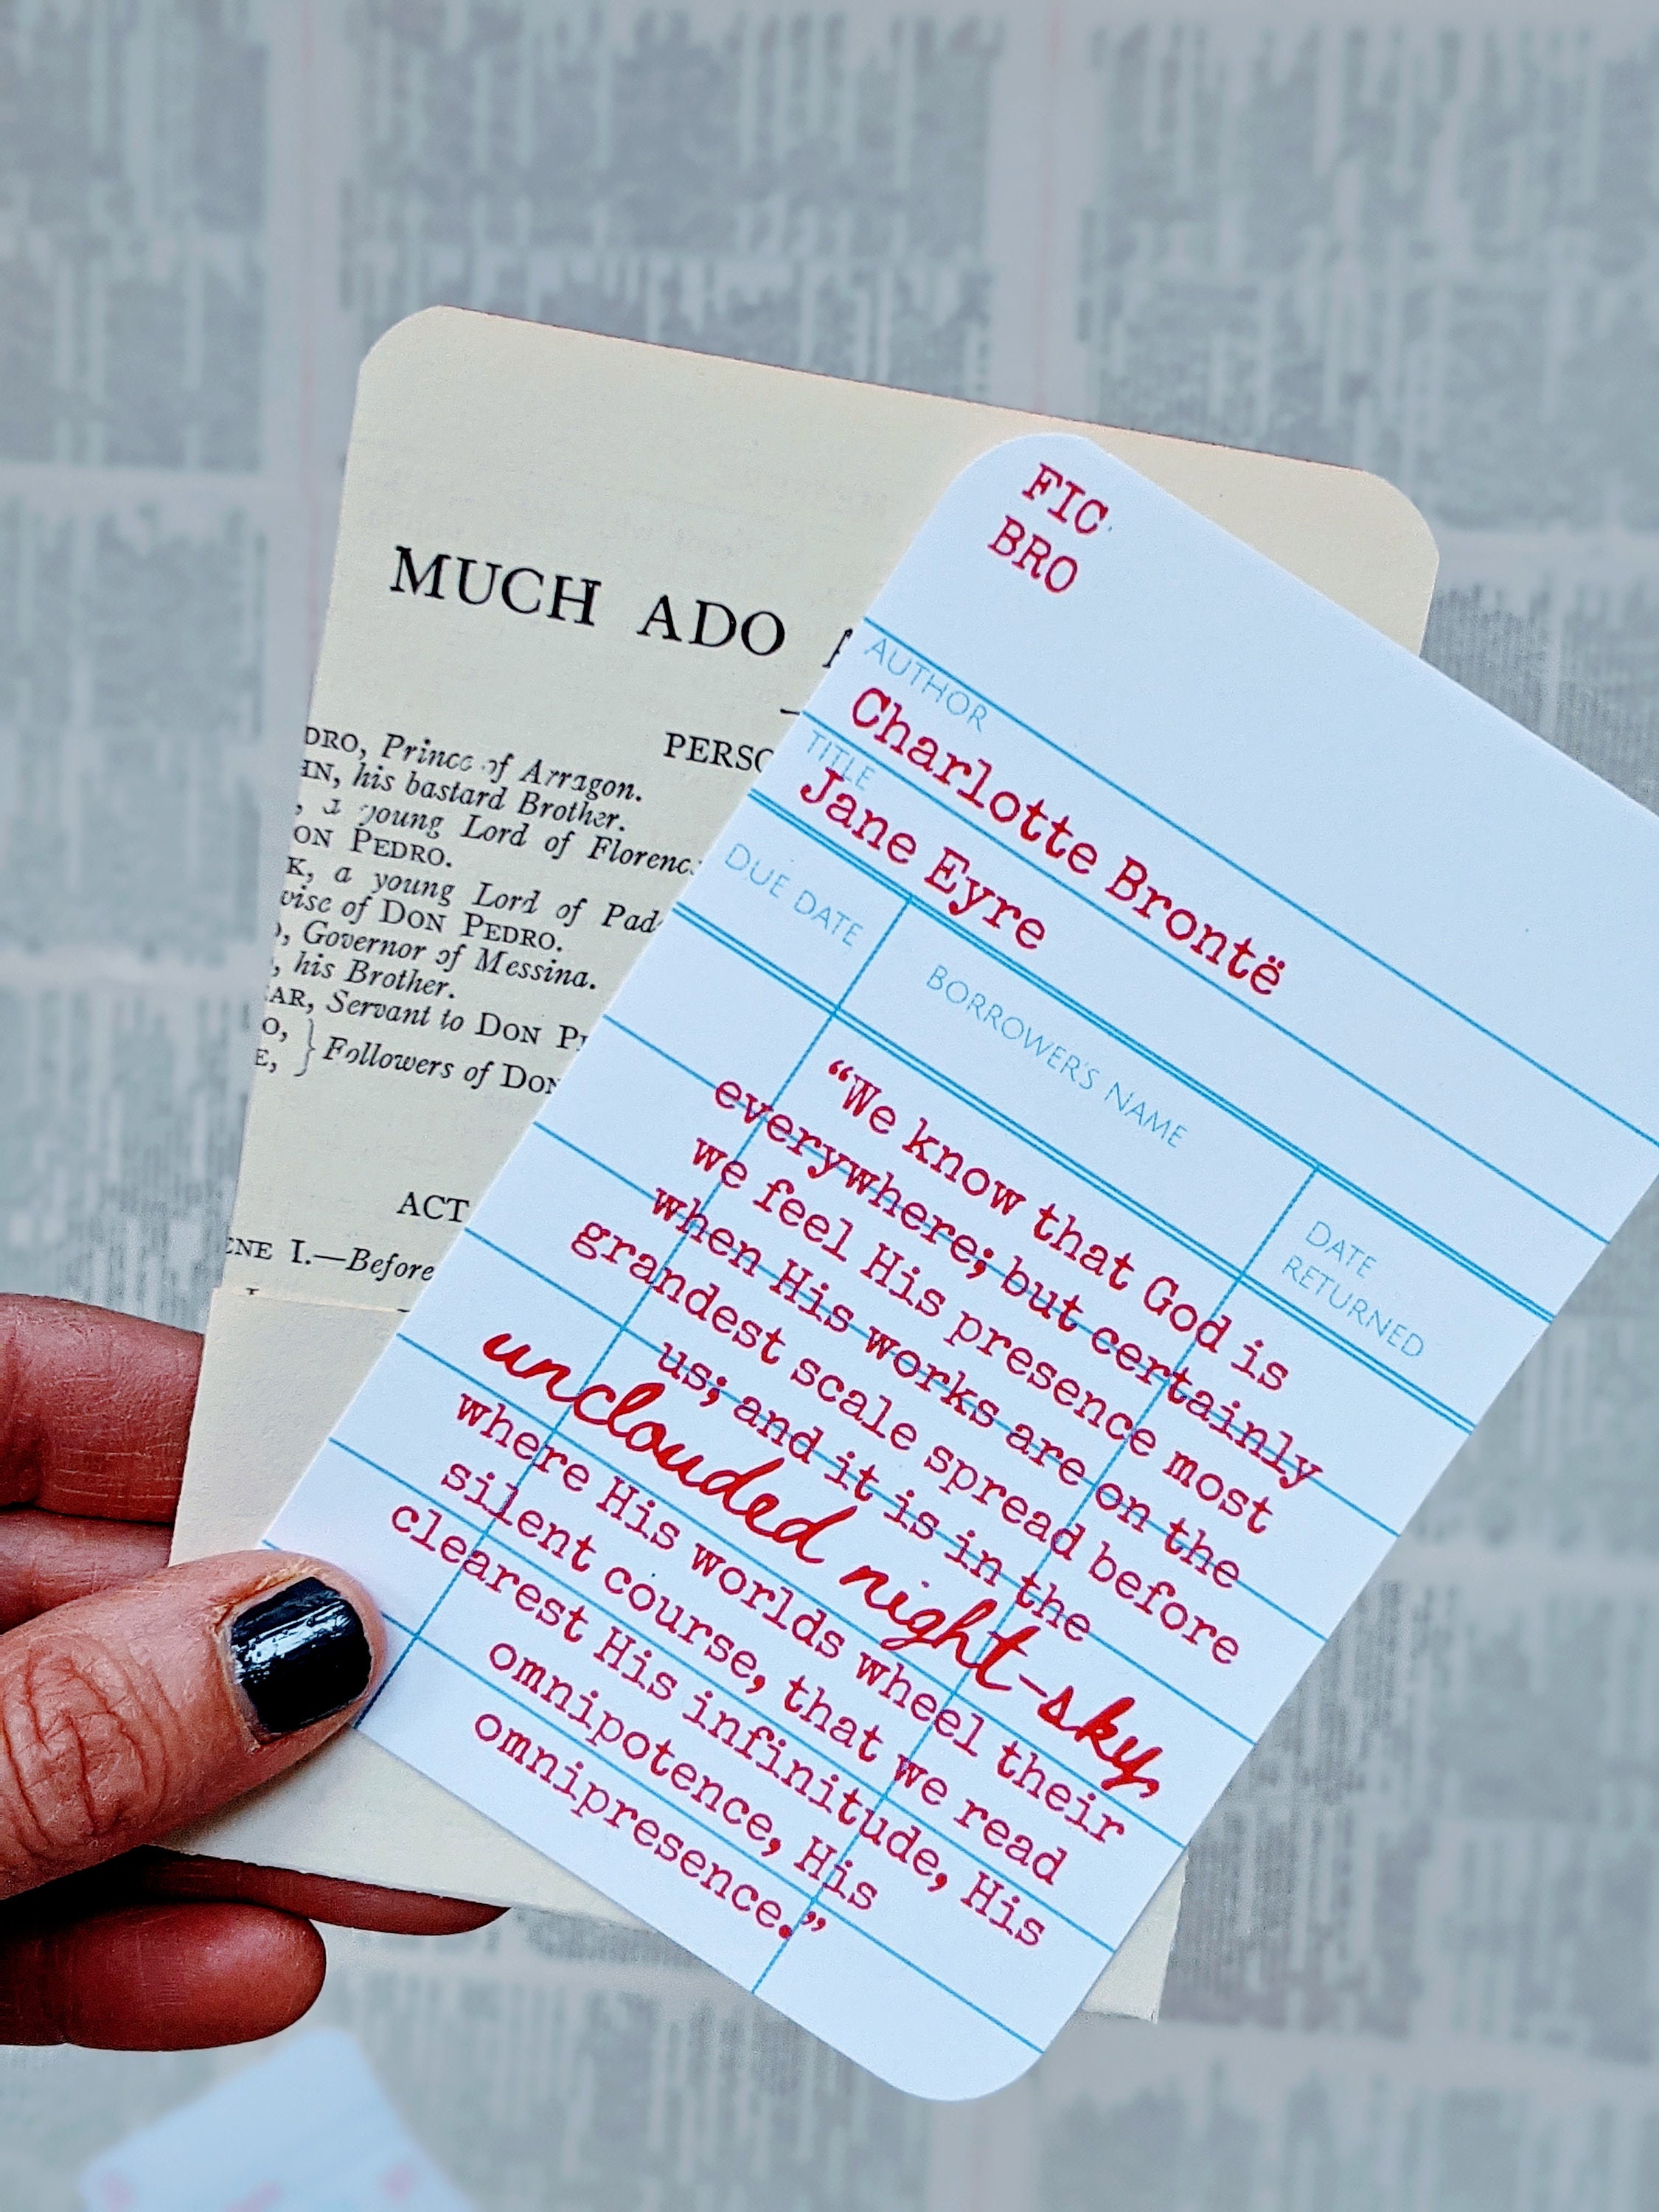 MUCH ADO
PERSO
DRO, Prince of Arragon.
HN, his bastard Brother.
, a young Lord of Florenc
ON PEDRO.
K, a young Lord of Pad
wise of DON PEDRO.
O, Governor of Messina.
, his Brother.
AR, Servant to DON P
O,
E, } Followers of DON
ACT
ENE I.—Before
FIC
BRO
AUTHOR
Charlotte Brontë
TITLE
Jane Eyre
DUE DATE
BORROWER'S NAME
DATE
RETURNED
“We know that God is
everywhere; but certainly
we feel His presence most
when His works are on the
grandest scale spread before
us; and it is in the
unclouded night-sky,
where His worlds wheel their
silent course, that we read
clearest His infinitude, His
omnipotence, His
omnipresence.”